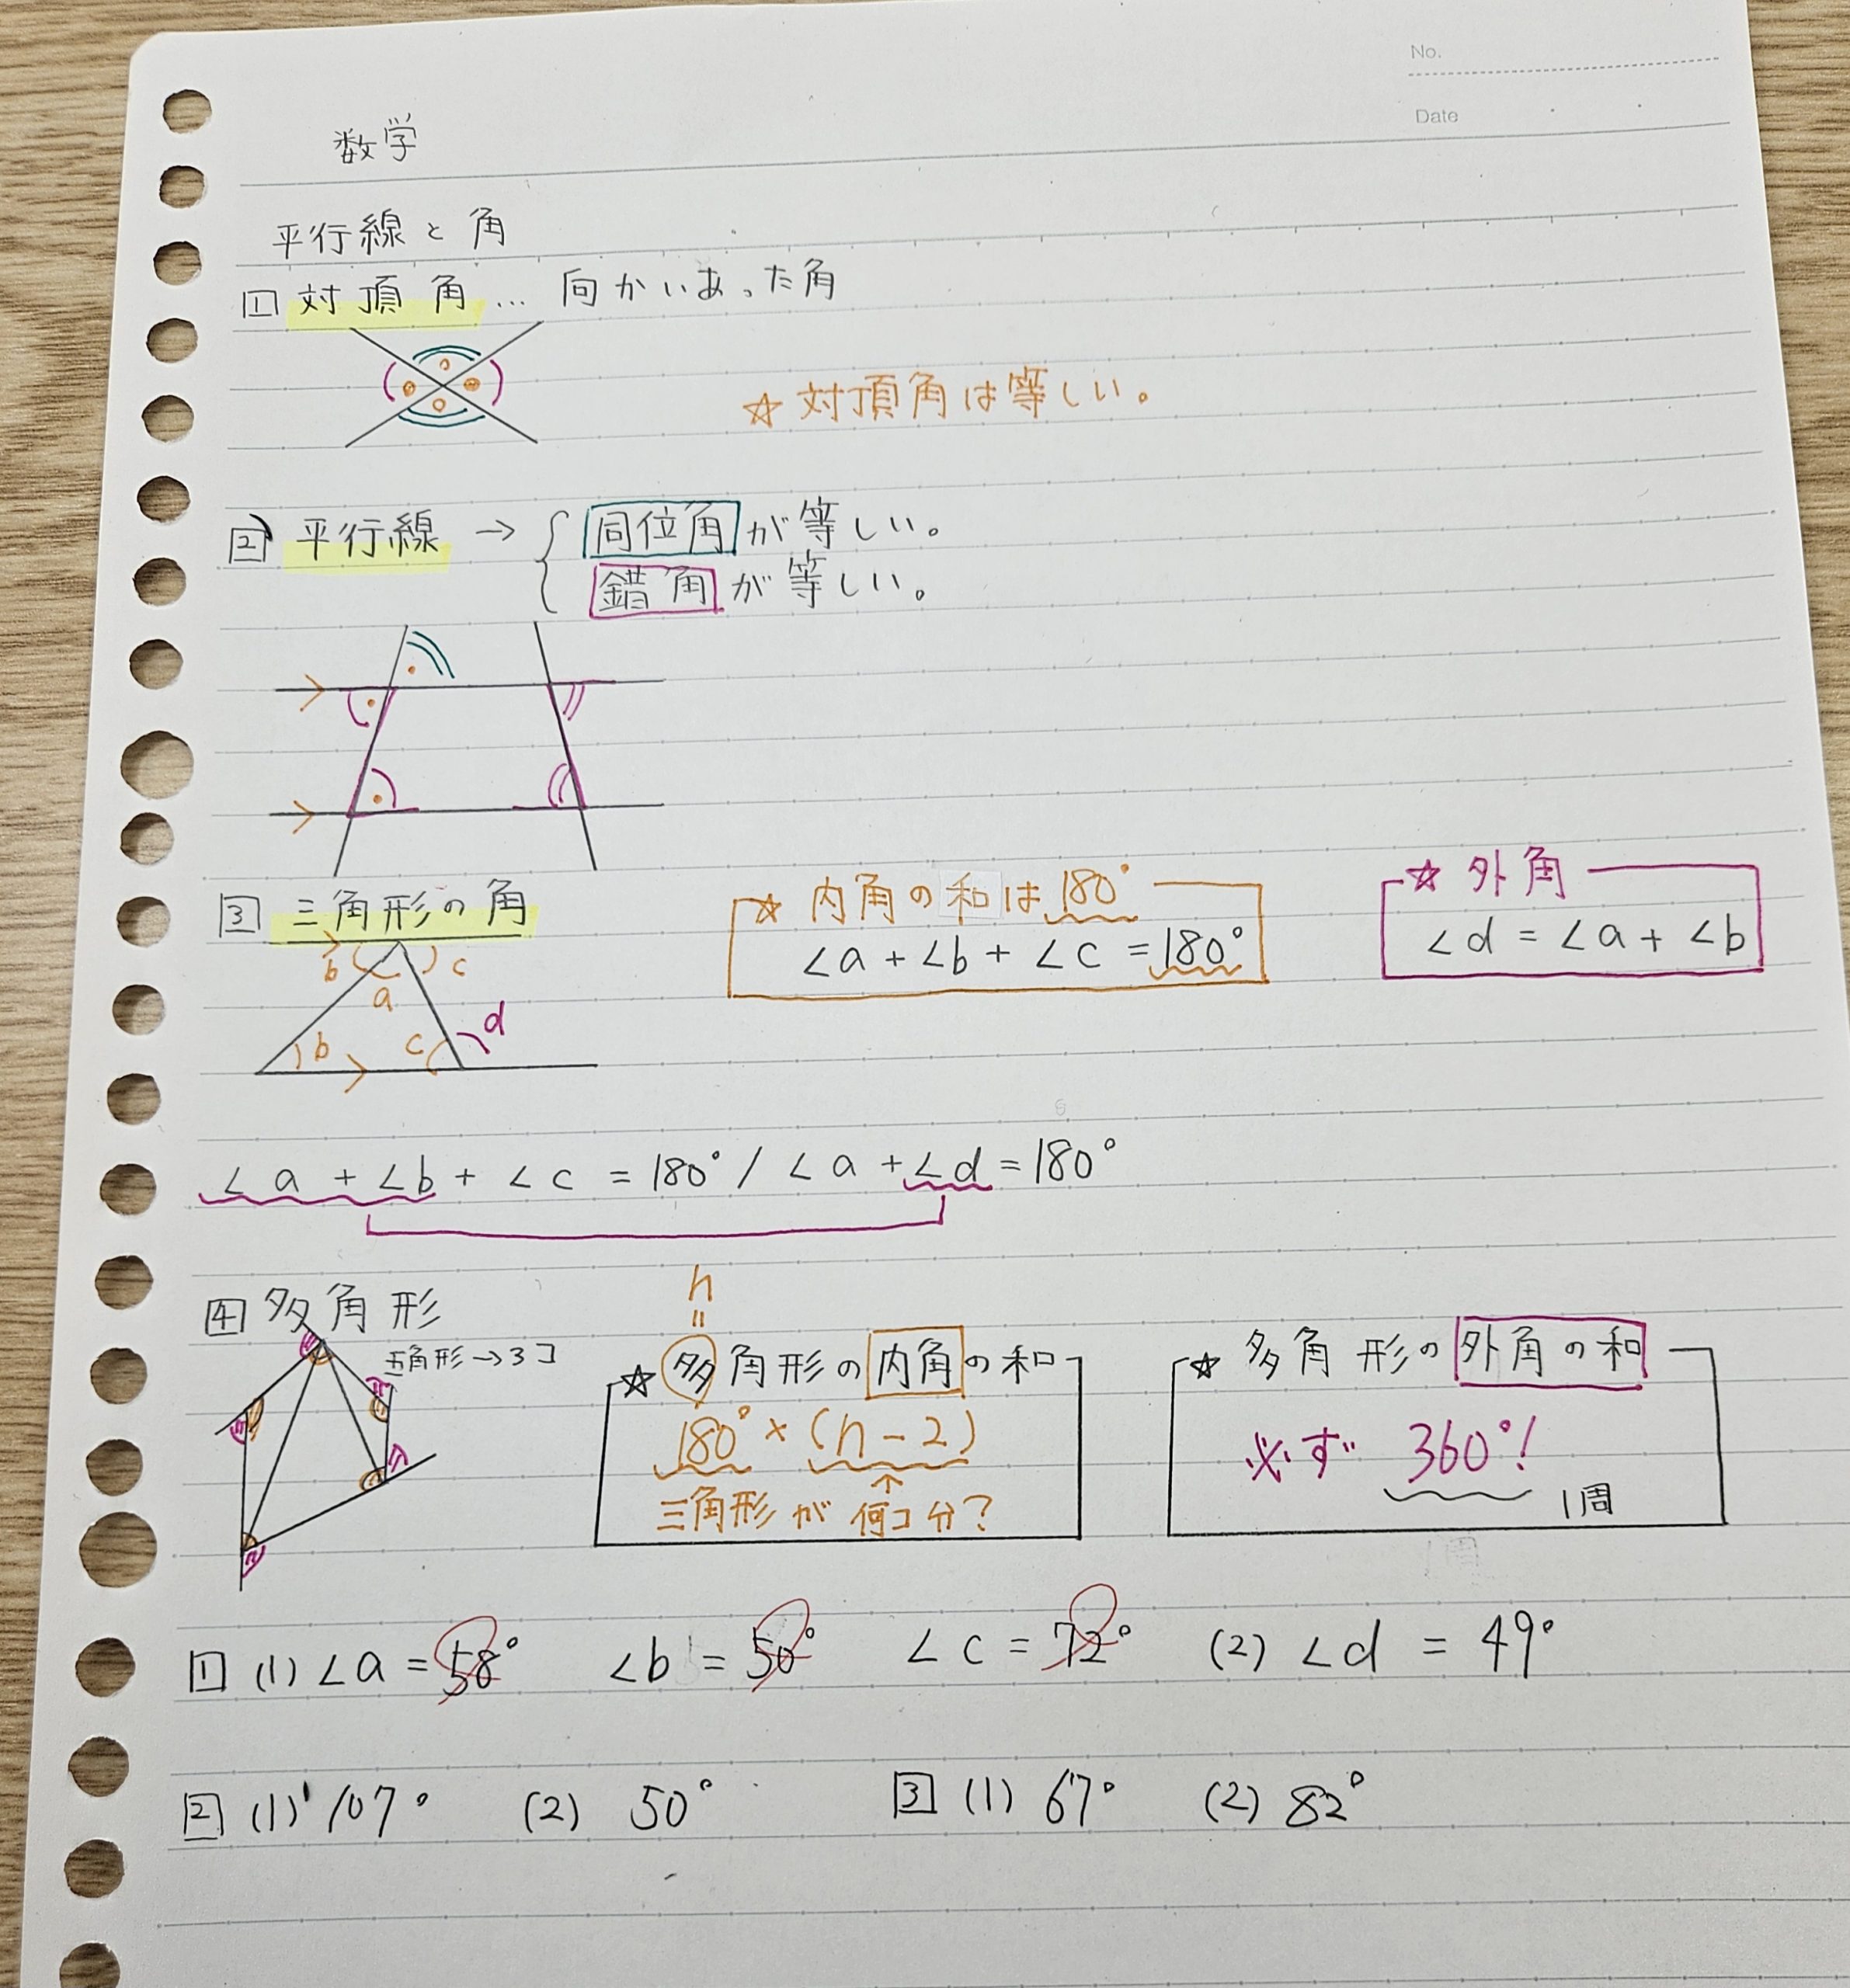 No.
Date
数学
平行線と角
1 対頂角… 向かいあった角
☆対頂角は等しい。
2 平行線 → { 同位角が等しい。
錯角が等しい。
3 三角形の角
☆内角の和は180°
∠a+∠b+∠c=180°
☆外角
∠d=∠a+∠b
b c
a
b c d
∠a+∠b+∠c=180°/∠a+∠d=180°
4 多角形
五角形→3コ
n
=
☆多角形の内角の和
180°×(n-2)
↑
三角形が何コ分?
☆多角形の外角の和
必ず 360°!
1周
1 (1) ∠a=58° ∠b=50° ∠c=72° (2) ∠d=49°
2 (1) 107° (2) 50° 3 (1) 67° (2) 82°